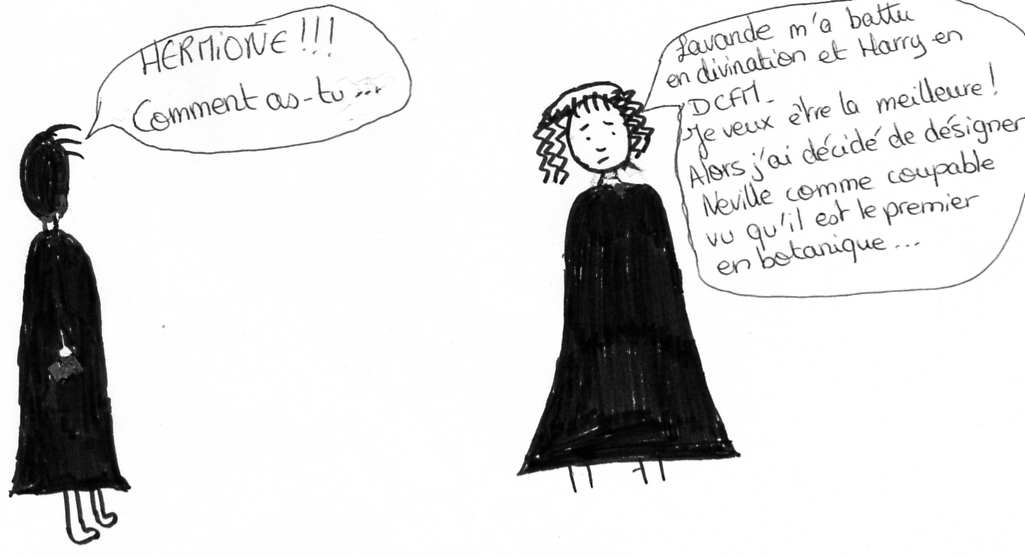 HERMIONE !!!
Comment as-tu ...
Lavande m'a battu
en divination et Harry en
DCFM.
Je veux être la meilleure !
Alors j'ai décidé de désigner
Neville comme coupable
vu qu'il est le premier
en botanique ...